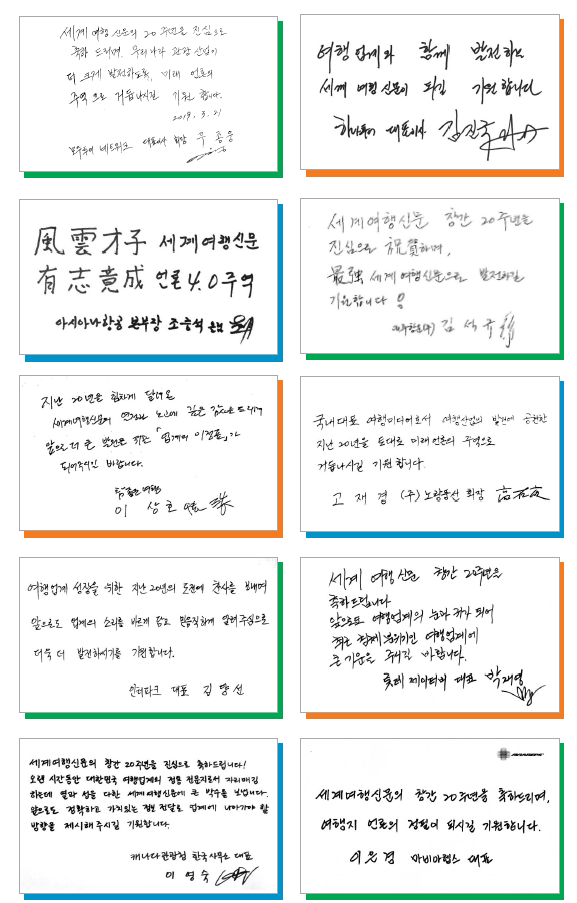 세계여행신문의 20주년을 진심으로
축하 드리며, 우리나라 관광산업이
더 크게 발전하도록, 미래 언론의
주역으로 거듭나시길 기원 합니다.
2019. 3. 21
모두투어 네트워크 대표이사 회장 우종웅
여행업계와 함께 발전하는
세계 여행신문이 되길 기원합니다
하나투어 대표이사 김진국
風雲才子 세계여행신문
有志竟成 언론 4.0 주역
아시아나항공 본부장 조승석
세계여행신문 창간 20주년을
진심으로 祝賀하며,
最强 세계여행신문으로 발전하길
기원합니다
김석규
지난 20년을 힘차게 달려온
세계여행신문의 열정과 노고에 깊은 감사를 드리며
앞으로 더 큰 발전을 위한 "업계의 이정표"가
되어주시길 바랍니다.
이상호
국내대표 여행미디어로서 여행산업의 발전에 공헌한
지난 20년을 토대로 미래언론의 주역으로
거듭나시길 기원합니다.
고재경 (주)노랑풍선 회장
여행업계 성장을 위한 지난 20년의 도전에 찬사를 보내며
앞으로도 업계의 소리를 바르게 담고 믿음직하게 알려주심으로
더욱 더 발전하시기를 기원합니다.
인터파크 대표 김양선
세계 여행신문 창간 20주년을
축하드립니다
앞으로도 여행업계의 눈과 귀가 되어
여행업계에
큰 기운을 주시길 바랍니다.
롯데제이티비 대표 박재영
세계여행신문의 창간 20주년을 진심으로 축하드립니다!
오랜 시간동안 대한민국 여행업계의 정통 전문지로서 자리매김
하는데 열과 성을 다한 세계여행신문에 큰 박수를 보냅니다.
앞으로도 정확하고 가치있는 정보 전달로 업계에 나아가야 할
방향을 제시해주시길 기원합니다.
캐나다관광청 한국사무소 대표
이영숙
세계여행신문의 창간 20주년을 축하드리며,
여행지 언론의 정점이 되시길 기원합니다.
이은경 마비아렙스 대표